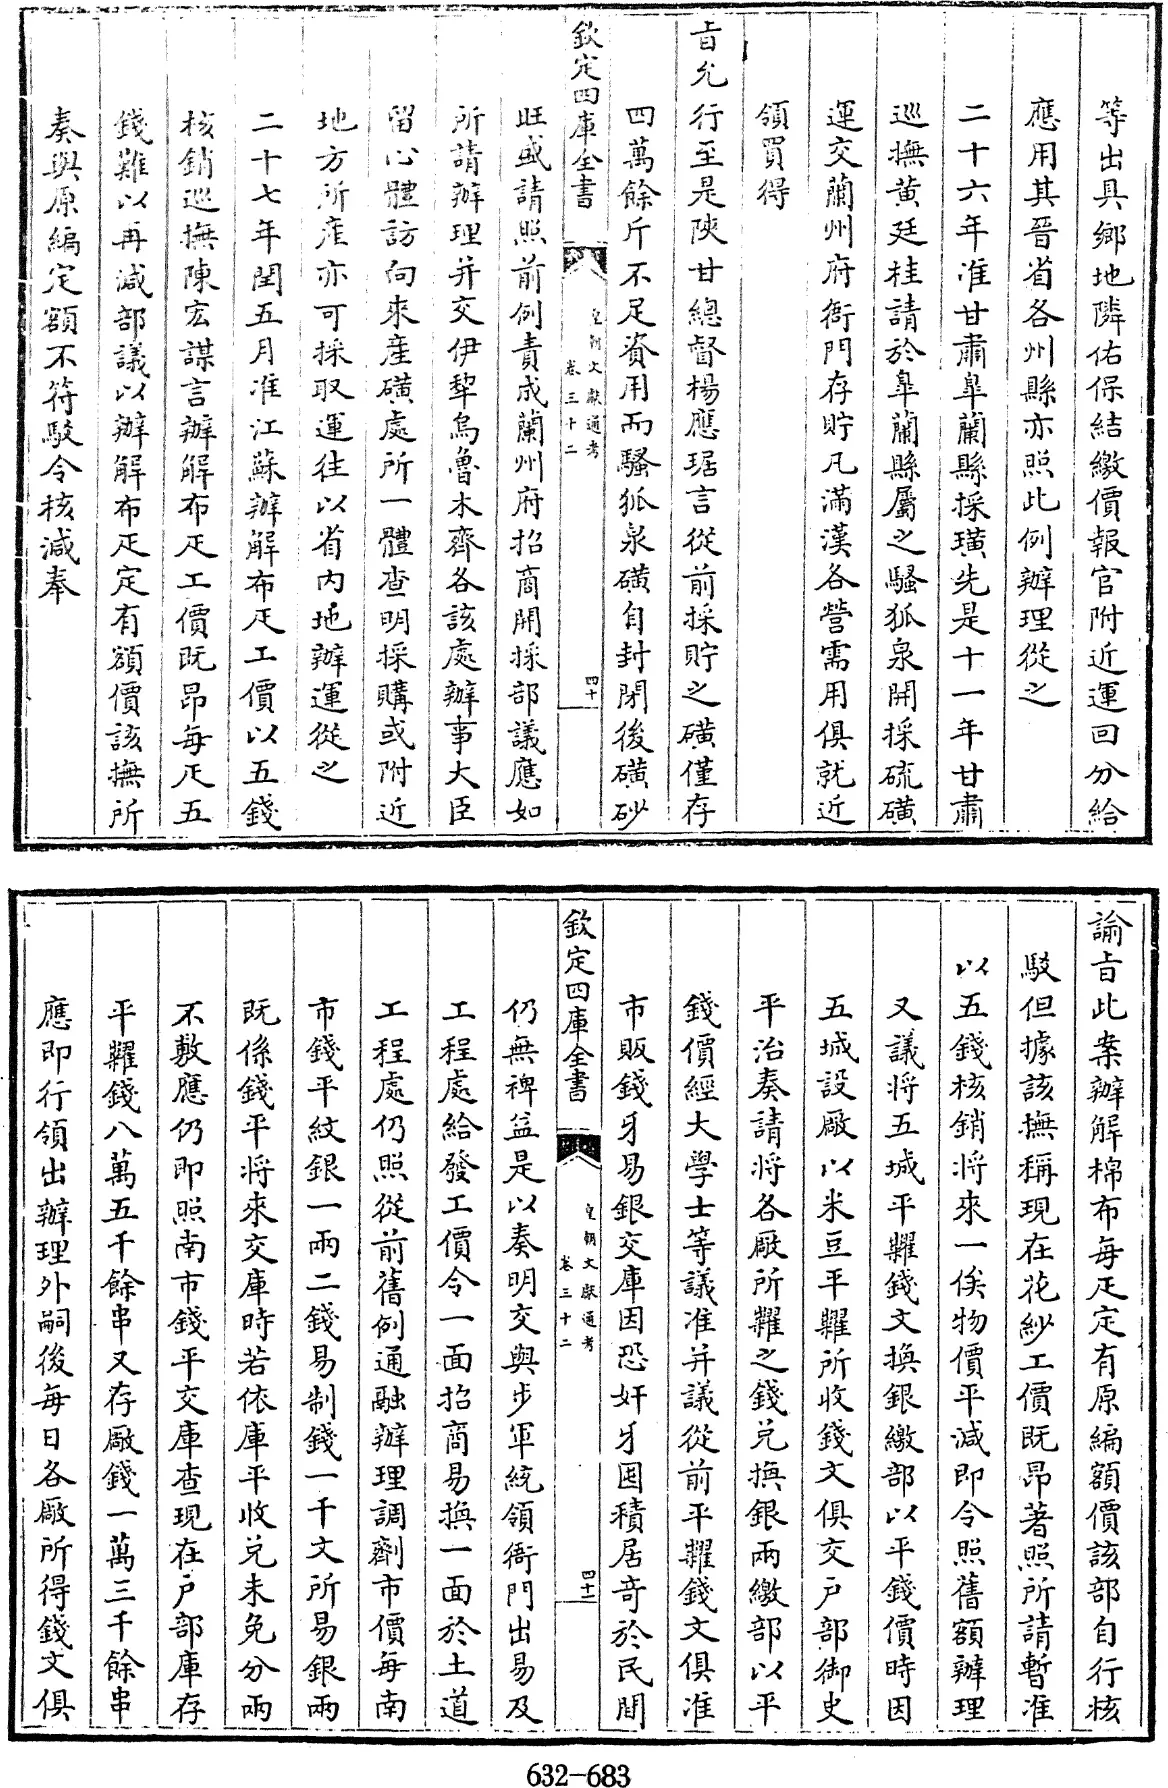 等出具鄉地隣佑保結繳價報官附近運回分給
應用其晉省各州縣亦照此例辦理從之
二十六年准甘肅臯蘭縣採磺先是十一年甘肅
巡撫黄廷桂請於臯蘭縣屬之騷狐泉開採硫磺
運交蘭州府衙門存貯凡滿漢各營需用俱就近
領買得
旨允行至是陝甘總督楊應琚言從前採貯之磺僅存
四萬餘斤不足資用而騷狐泉磺自封閉後磺砂
欽定四庫全書
皇朝文獻通考
卷三十二
四十
旺盛請照前例責成蘭州府招商開採部議應如
所請辦理并交伊犂烏魯木齊各該處辦事大臣
留心體訪向來產磺處所一體查明採購或附近
地方所產亦可採取運往以省内地辦運從之
二十七年閏五月准江蘇辦解布疋工價以五錢
核銷巡撫陳宏謀言辦解布疋工價既昂每疋五
錢難以再減部議以辦解布疋定有額價該撫所
奏與原編定額不符駁令核減奉
諭旨此案辦解棉布每疋定有原編額價該部自行核
駁但據該撫稱現在花紗工價既昂著照所請暫准
以五錢核銷將來一俟物價平減即令照舊額辦理
又議將五城平糶錢文換銀繳部以平錢價時因
五城設厰以米豆平糶所收錢文俱交户部御史
平治奏請將各厰所糶之錢兑換銀兩繳部以平
錢價經大學士等議准并議從前平糶錢文俱准
市販錢牙易銀交庫因恐奸牙囤積居奇於民間
欽定四庫全書
皇朝文獻通考
卷三十二
四十一
仍無裨益是以奏明交與步軍統領衙門出易及
工程處給發工價令一面招商易換一面於土道
工程處仍照從前舊例通融辦理調劑市價每南
市錢平紋銀一兩二錢易制錢一千文所易銀兩
既係錢平將來交庫時若依庫平收兑未免分兩
不敷應仍即照南市錢平交庫查現在户部庫存
平糶錢八萬五千餘串又存厰錢一萬三千餘串
應即行領出辦理外嗣後每日各厰所得錢文俱
632-683